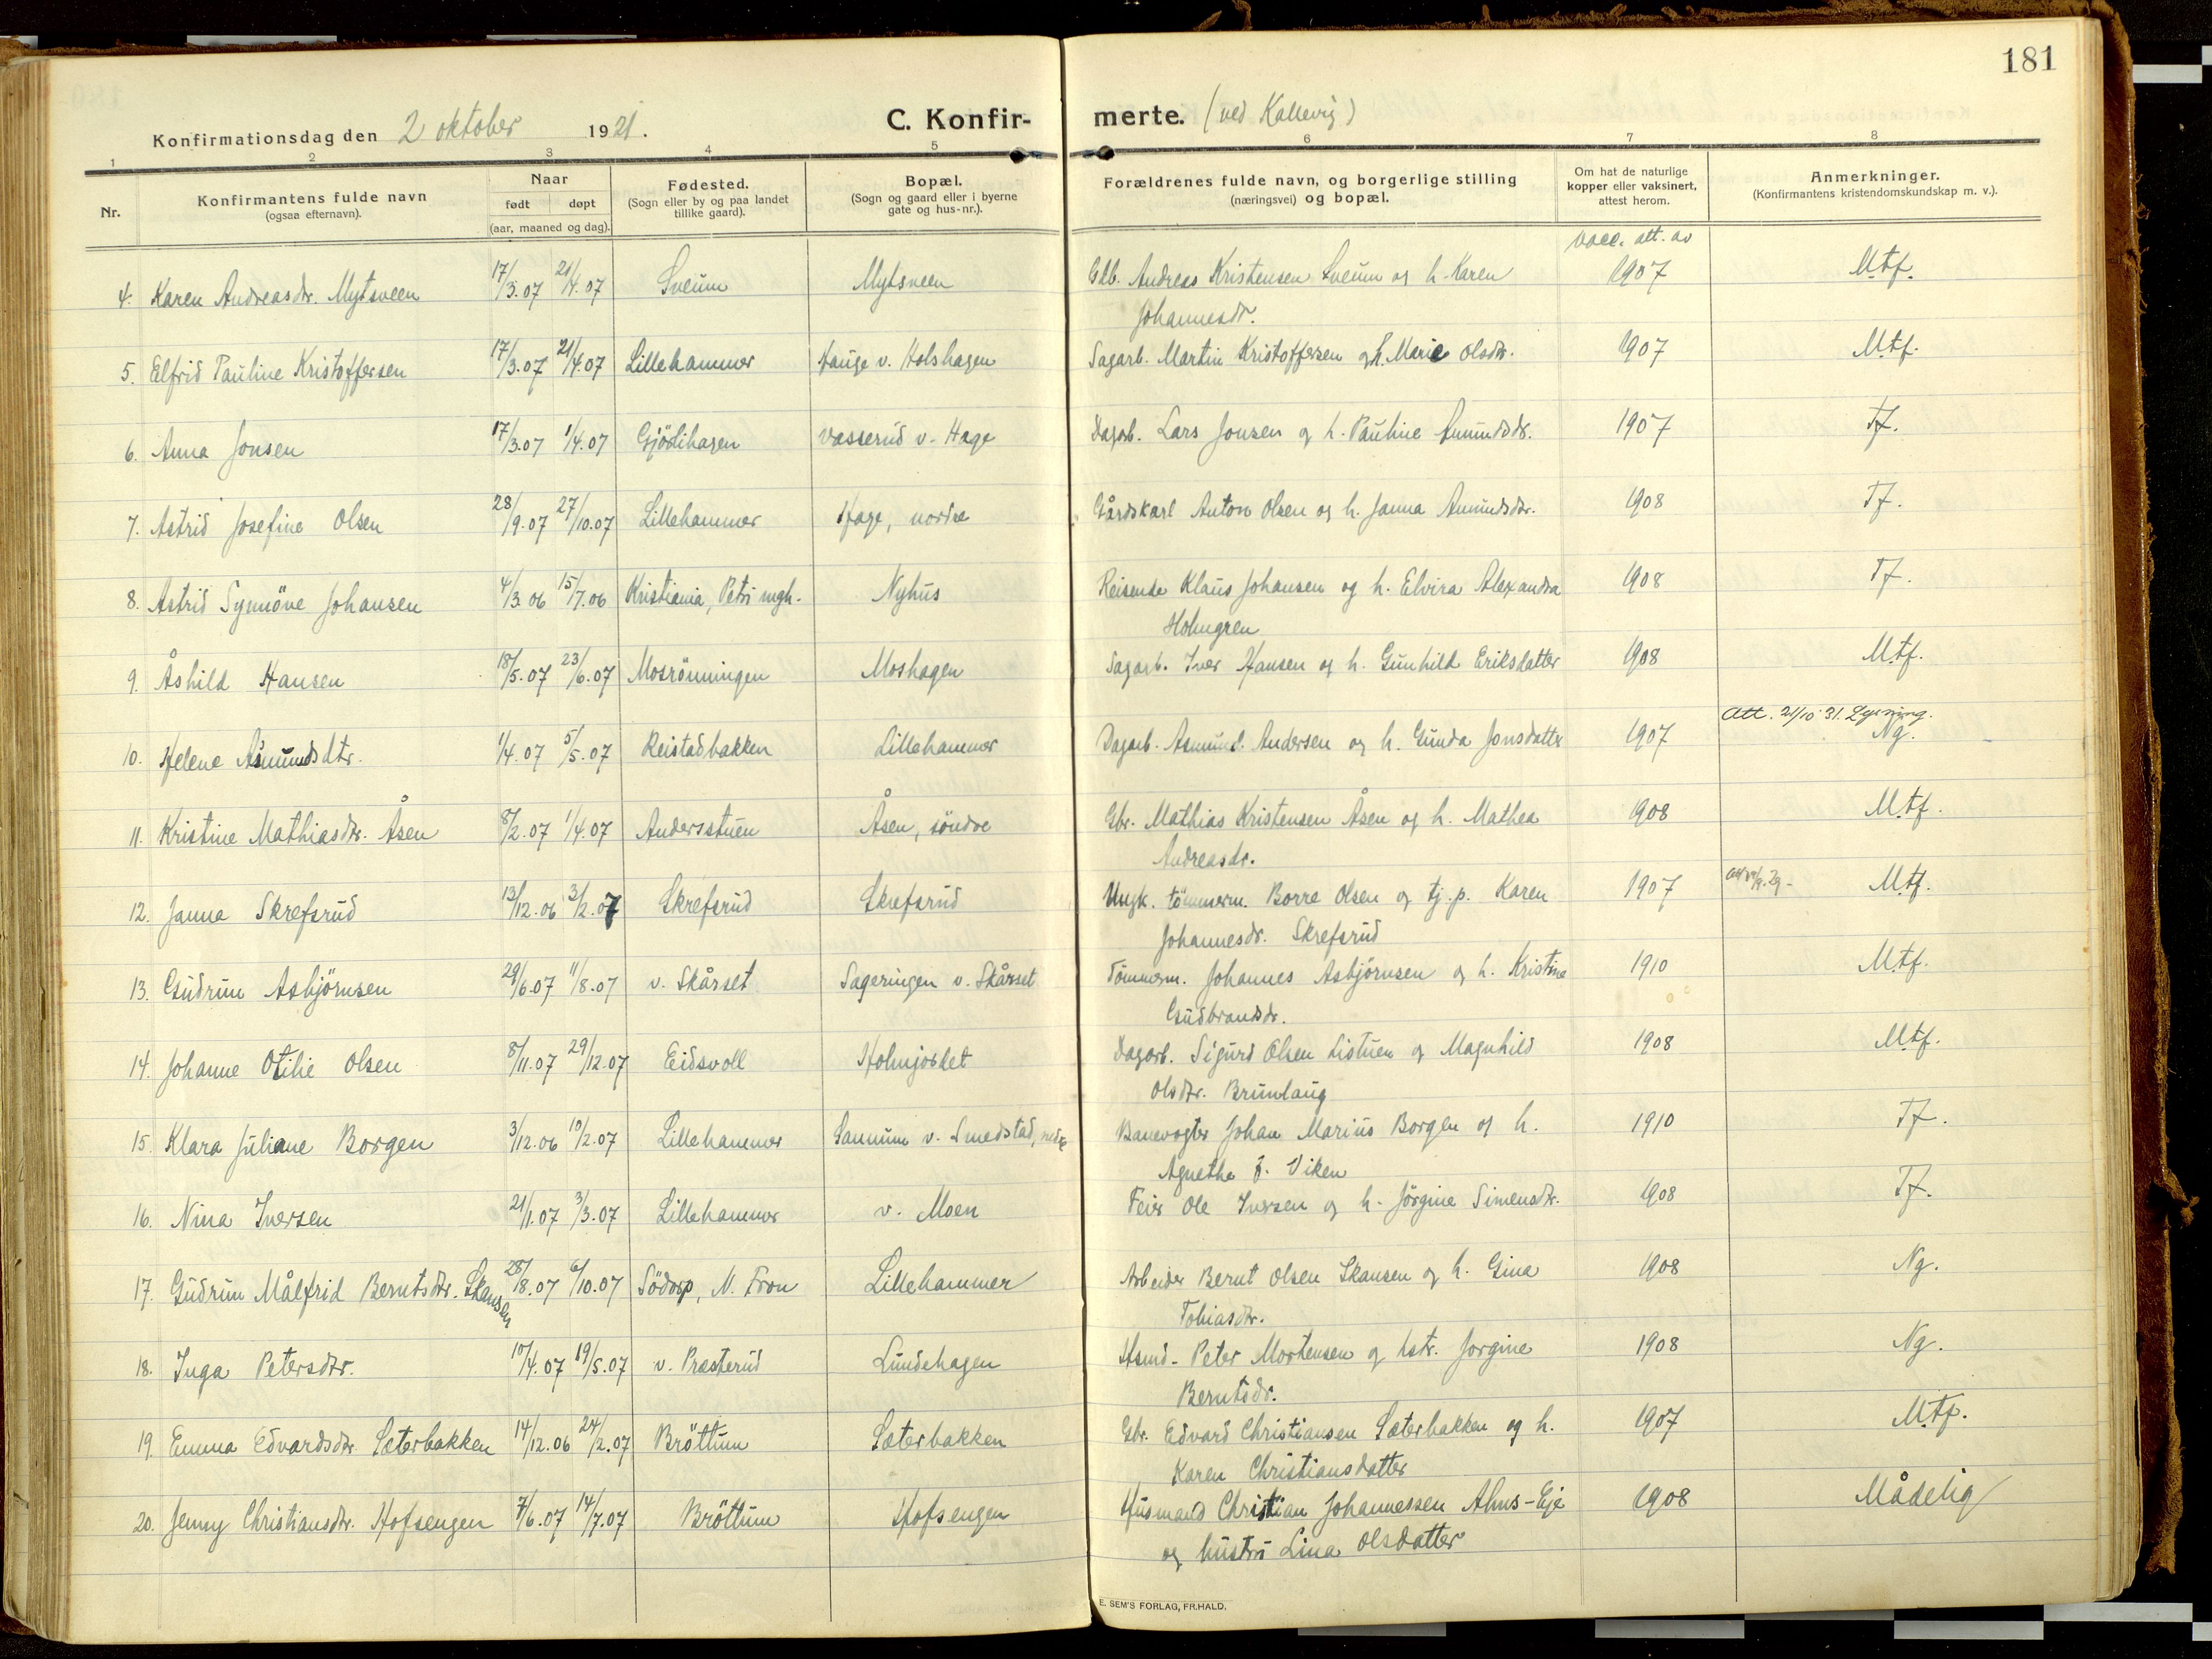 181
Konfirmationsdag den 2 oktober 1921. C. Konfir-merte. (ved Kallevig)
1 2 3 4 5 6 7 8
Nr.
Konfirmantens fulde navn
(ogsaa efternavn).
Naar
født døpt
(aar, maaned og dag).
Fødested.
(Sogn eller by og paa landet
tillike gaard).
Bopæl.
(Sogn og gaard eller i byerne
gate og hus-nr.).
Forældrenes fulde navn, og borgerlige stilling
(næringsvei) og bopæl.
Om hat de naturlige
kopper eller vaksinert,
attest herom.
Anmerkninger.
(Konfirmantens kristendomskundskap m. v.).
vacc. att. av
4. Karen Andreasdr. Mytsveen 17/3.07 21/4.07 Sveum Mytsveen Gdb. Andreas Kristensen Sveum og h. Karen 1907 Mtf.
Johannesdr.
5. Elfrid Pauline Kristoffersen 17/3.07 21/4.07 Lillehammer Hauge v. Holshagen Sagarb. Martin Kristoffersen og h. Marie Olsdtr. 1907 Mtf.
6. Anna Jonsen 17/3.07 1/4.07 Gjörlihagen Vasserud v. Hage Dagarb. Lars Jonsen og h. Pauline Amundsdr. 1907 Tf.
7. Astrid Josefine Olsen 28/9.07 27/10.07 Lillehammer Hage, nordre Gårdskarl Anton Olsen og h. Janna Amundsdtr. 1908 Tf.
8. Astrid Synnöve Johansen 4/3.06 15/7.06 Kristiania, Petri mgh. Nyhus Reisende Klaus Johansen og h. Elvira Alexandra 1908 Tf.
Holmgren
9. Åshild Hansen 18/5.07 23/6.07 Mosrönningen Moshagen Sagarb. Iver Hansen og h. Gunhild Eriksdatter 1908 Mtf.
Att. 21/10 31. Lysning.
10. Helene Asmundsdtr. 1/4.07 5/5.07 Reistadbakken Lillehammer Dagarb. Asmund Andersen og h. Gunda Jonsdatter 1907 Ng.
11. Kristine Mathiasdtr. Åsen 8/2.07 1/4.07 Andersstuen Åsen, söndre Gbr. Mathias Kristensen Åsen og h. Mathea 1908 Mtf.
Andreasdr.
12. Janna Skrefsrud 13/12.06 3/2.07 Skrefsrud Skrefsrud Ungk. tömmerm. Borre Olsen og tj. p. Karen 1907 Mtf.
Johannesdr. Skrefsrud
13. Gudrun Asbjörnsen 29/6.07 11/8.07 v. Skårset Sageringen v. Skårset Tömmerm. Johannes Asbjörnsen og h. Kristine 1910 Mtf.
Gudbrandsdr.
14. Johanne Otilie Olsen 8/11.07 29/12.07 Eidsvoll Holmjordet Dagarb. Sigurd Olsen Listuen og Magnhild 1908 Mtf.
Olsdtr. Brunlaug
15. Klara Juliane Borgen 3/12.06 10/2.07 Lillehammer Sannum v. Smedstad, nedre Banevogter Johan Marius Borgen og h. 1910 Tf.
Agnethe J. Viken
16. Nina Iversen 21/1.07 3/3.07 Lillehammer v. Moen Feier Ole Iversen og h. Jörgine Simensdtr. 1908 Tf.
17. Gudrun Målfrid Berntsdtr. Skansen 28/8.07 6/10.07 Södorp, N. Fron Lillehammer Arbeider Bernt Olsen Skansen og h. Gina 1908 Ng.
Tobiasdtr.
18. Inga Petersdtr. 10/4.07 19/5.07 v. Prasterud Lundehagen Hsmd. Peter Mortensen og hstr. Jorgine 1908 Ng.
Berntsdr.
19. Emma Edvardsdtr. Sæterbakken 14/12.06 24/2.07 Bröttum Sæterbakken Gbr. Edvard Christiansen Sæterbakken og h. 1907 Mtf.
Karen Christiansdatter
20. Jenny Christiansdtr. Hofsengen 7/6.07 14/7.07 Bröttum Hofsengen Husmand Christian Johannessen Ahus-Eje 1908 Mådelig
og hustru Lina Olsdatter
E. SEM'S FORLAG, FR.HALD.